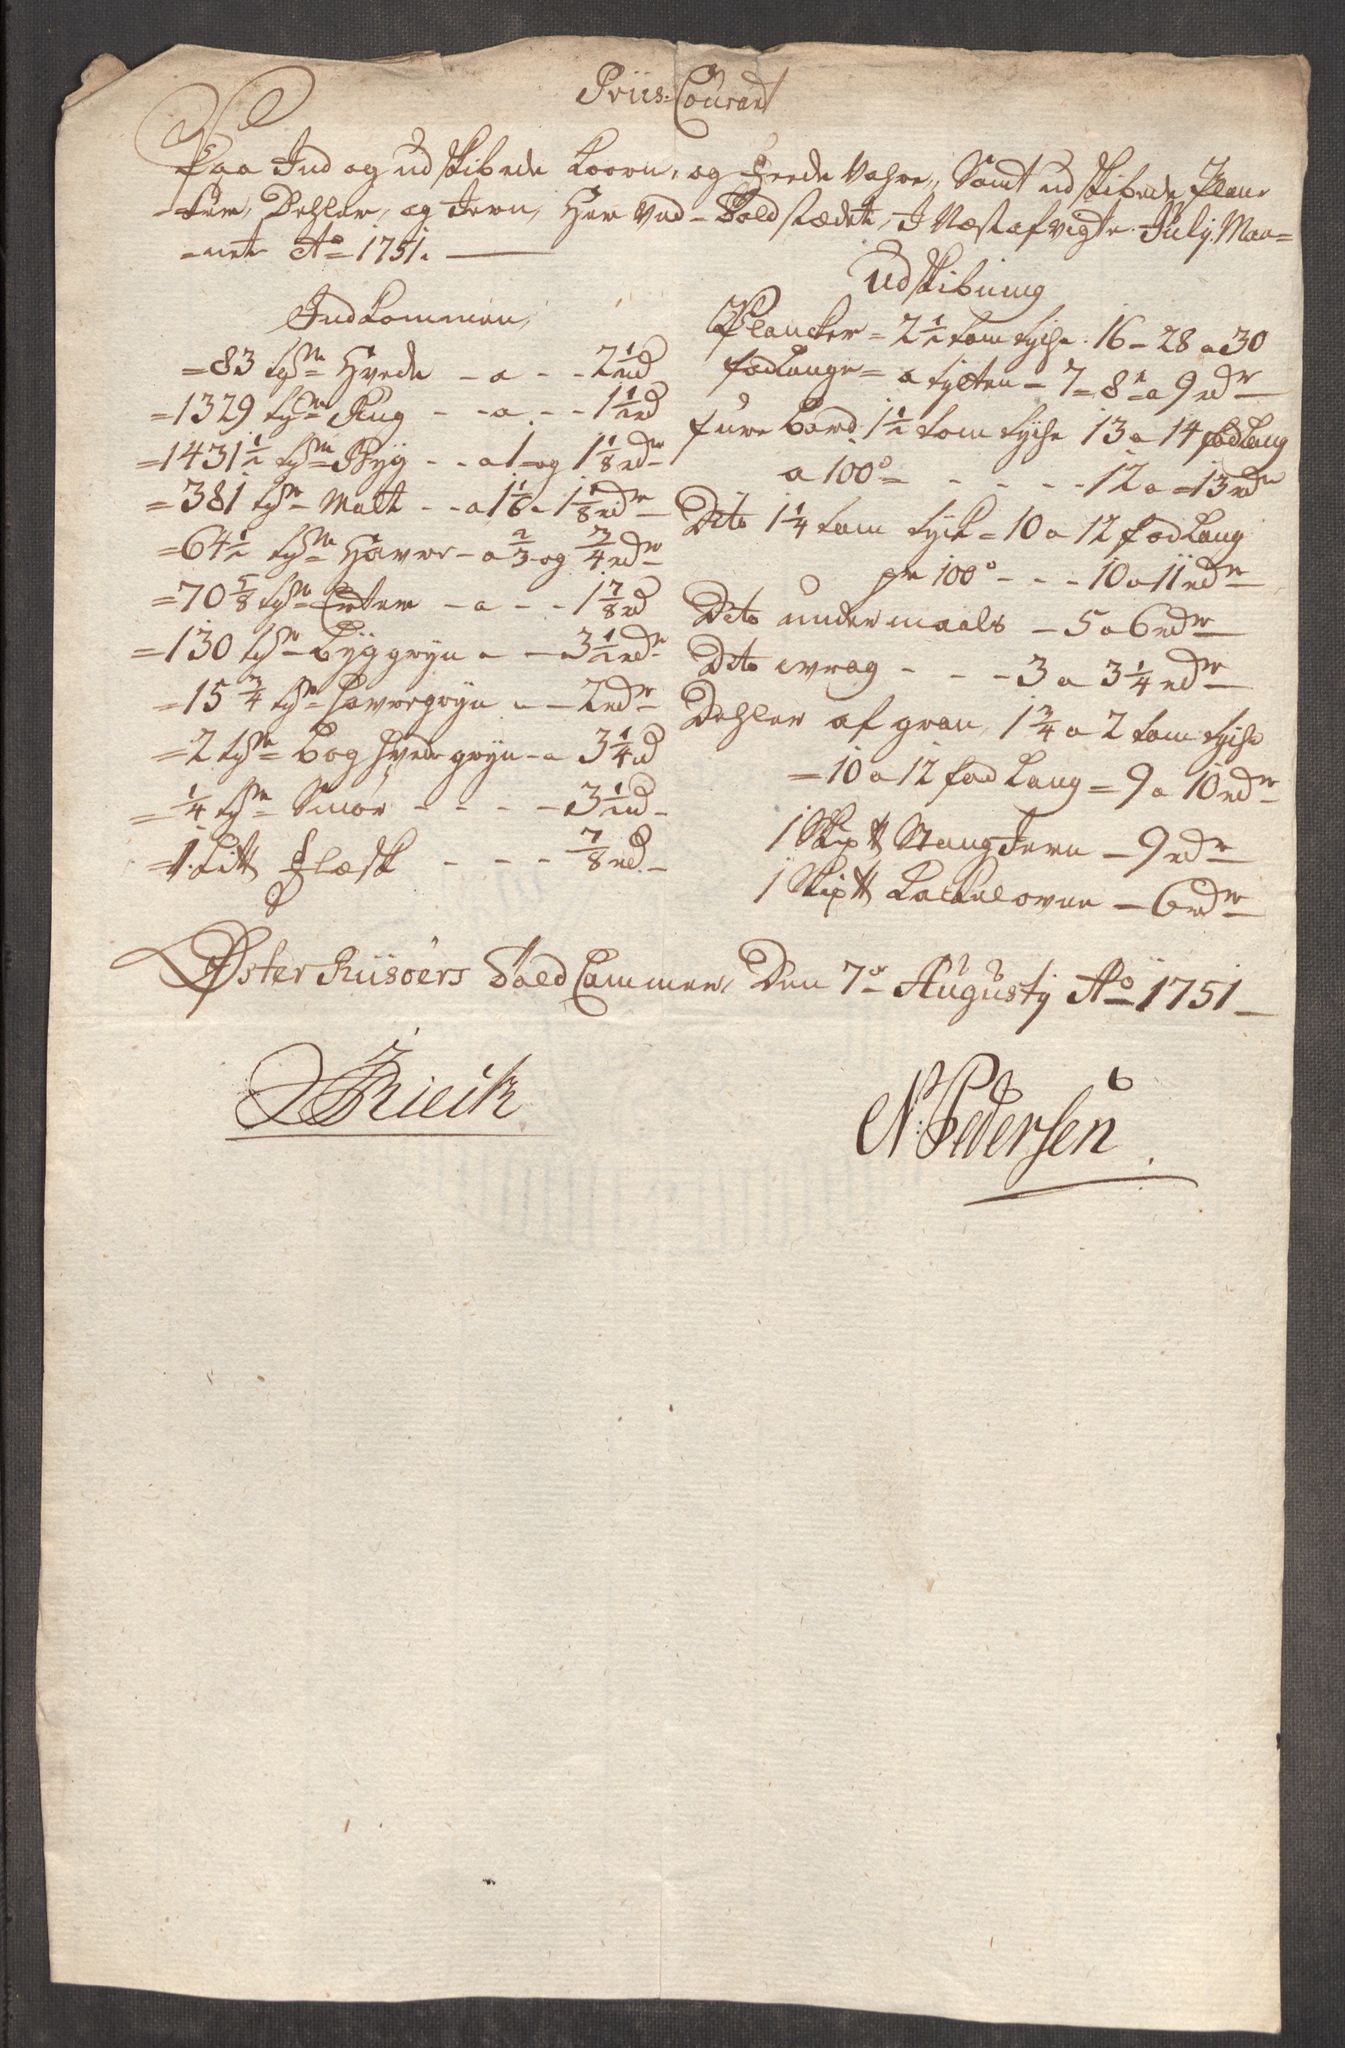 Priis-Courant
Paa Ind og udskibede Koorn, og Feede Vahre, Samt udskibede Plan-
ker, Dehler, og Jern, Her Ved Toldstædet, I Næstafvigte July Maa=
=net Ao 1751.
Indkommen,
=83 tdr Hvede - a - - 2 1/2 rd
=1329 tdr Rug - - a - - 1 1/2 rd
=1431 1/2 tdr Byg - - a 1 og 1 1/8 rdr
=381 tdr Malt - - a 1 1/6 - 1 1/8 rdr
=64 1/2 tdr Havre - a 2/3 og 3/4 rdr
=70 5/8 tdr Erter - a - - 1 7/8 rd
=130 tdr Byggryn - - a 3 1/2 rdr
=15 3/4 tdr Havregryn - - 2 rdr
=2 tdr Boghvede gryn - a 3 1/4 rd
=1/4 tdr Smør - - - - 3 1/2 rd
=1 Litt Flæsk - - - 7/8 rd
Udskibning
Plancker = 2 1/2 tom tyche 16 - 28 a 30
fodLange = a tylten - 7 = 8 a 9 rdr
furre Bord 1 1/2 tom tyche 13 a 14 fodLang
a 100de - - - - 12 a 13 rdr
Dito 1 1/4 tom tyck = 10 a 12 fod Lang
pr 100de - - - 10 a 11 rdr
Dito undermaals - 5 a 6 rdr
Dito wrag - - - 3 a 3 1/4 rdr
Dehler af gran, 1 3/4 a 2 tom tyche
= 10 a 12 fod Lang = 9 a 10 rdr
1 Skip ℔ StangJern - 9 rdr
1 Skip ℔ Kackelovne - 6 rdr
Øster Riisøers Told Cammer, Den 7de Augusty Ao 1751
N: Pedersen